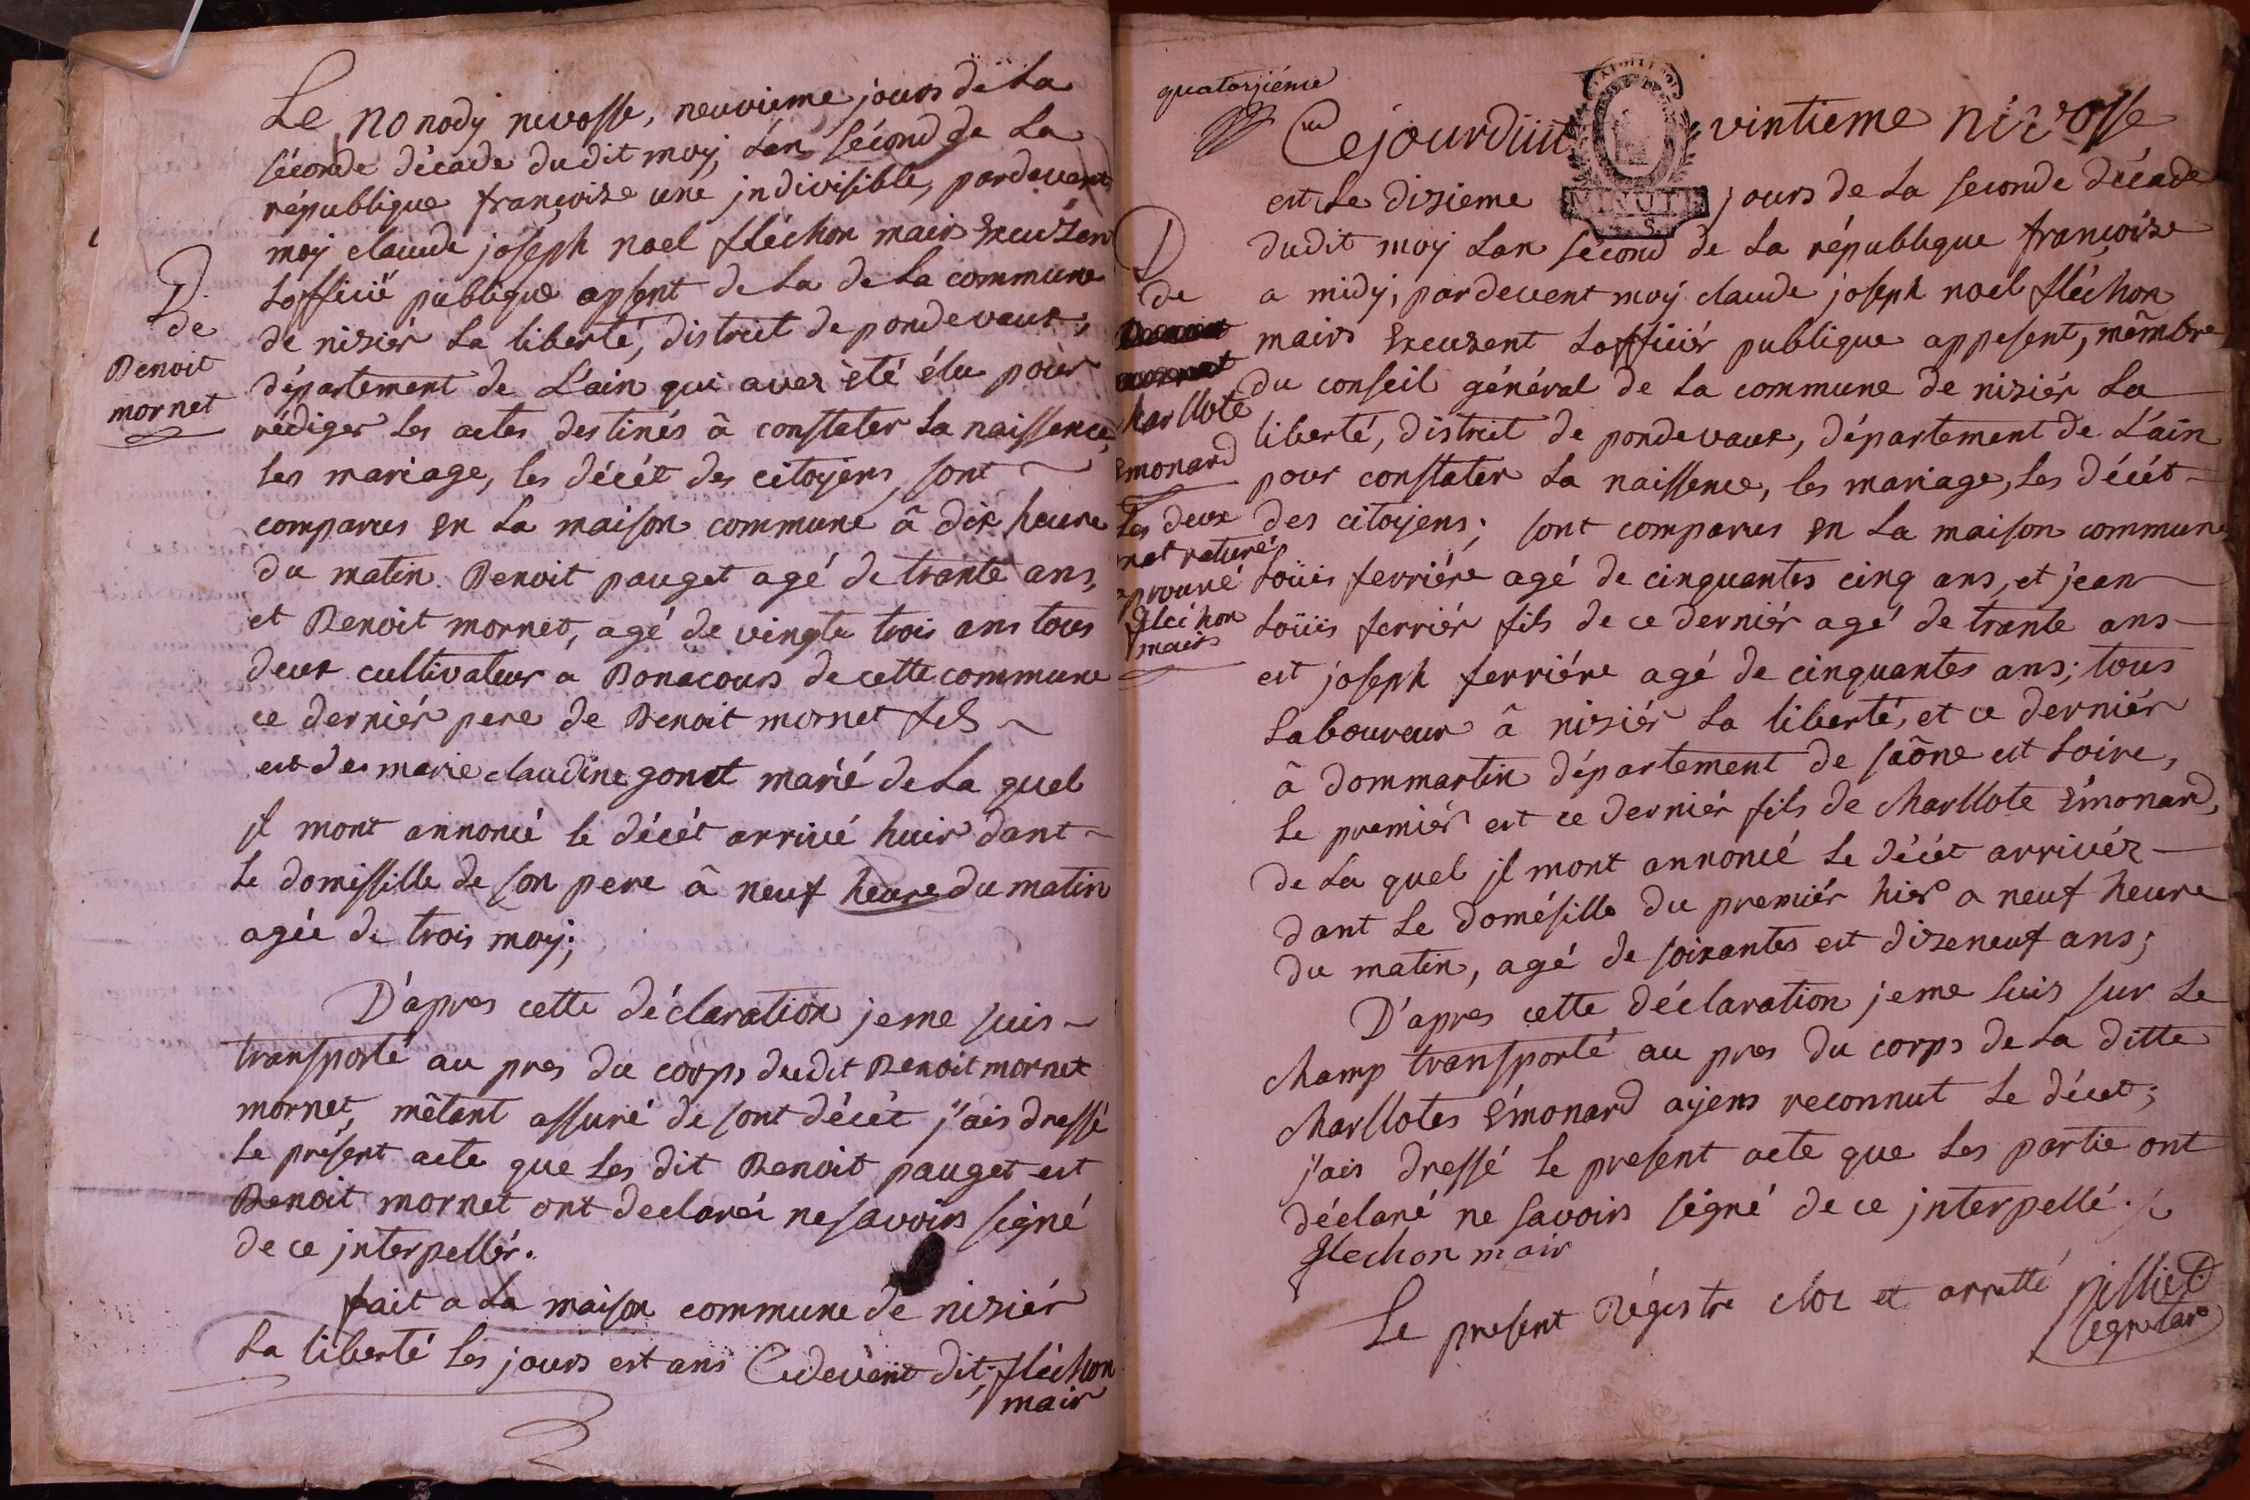 Le nonody nivosse, neuvieme jours de La
séconde décade dudit moy, Lan sécond de La
république françoise une jndivisible, pardevent
moy claude joseph noel fléchon mair Excuzen
Lofficié publique apsent de La de La commune
de niziér La liberté, distrect de pondevaux,
département de L'ain qui avez été élu pour
rédiger les actes destinés â constater La naissence,
les mariage, les décét des citoyens, sont
comparus en La maison commune â dix heure
du matin Benoit pauget agé de trante ans,
et Benoit mornet, agé de vingte trois ans tous
deux cultivateur a Bonacours de cette commune
ce derniér pere de Benoit mornet fils
est de marie claudine gonet marié de La quel
jl mont annoncé le décét arrivé huir dant
Le domissille de son pere â neuf heure du matin
agée de trois moy;
D'apres cette déclaration jeme suis
transporté au pres du corps dudit Benoit mornet
mornet, mêtent assuré de sont décét j'ais dressé
Le présent acte que Les dit Benoit pauget est
Benoit mornet ont declaréz ne savoirs signé
de ce jnterpellér.
fait a La maison commune de niziér
La liberté Les jours est ans Cidevent dit; fléchon
mair
D.
de
Benoit
mornet
quatorziéme
Cejourdhui vintieme nivosse
MINUTE
est Le dixieme jours de La seconde décade
dudit moy Lan sécond de La république françoise
a midy, pardevent moy claude joseph noel fléchon
mairs Excuzent Lofficiér publique appesent, mêmbre
du conseil général de La commune de niziér La
liberté, distrect de pondevaux, département de L'ain
pour constater La naissence, les mariage, Les décét
des citoyens; sont comparus en La maison commune
Loüis ferriére agé de cinquantes cinq ans, et jean
Loüis ferriér fils de ce derniér agé de trante ans
est joseph ferriére agé de cinquantes ans; tous
Laboureur â niziér La liberté, et ce derniér
â dommartin département de saône est Loire,
Le premiér est ce derniér fils de charllote Emonard,
de La quel jl mont annoncé Le décét arrivéz
dant Le domésille du premiér hier a neuf heure
du matin, agé de soixantes est dizeneuf ans;
D'apres cette déclaration jeme suis sur Le
champ transporté au pres du corps de La ditte
charllotes Emonard ayens reconnut Le décet;
j'ais dressé Le present acte que Les partie ont
déclaré ne savoirs signé de ce jnterpellé.
flechon mair
Le present Régistre cloz et arretté
segretare
D
de
harllote
Emonard
Les deux
mot raturé
aprouvé
fléchon
mair